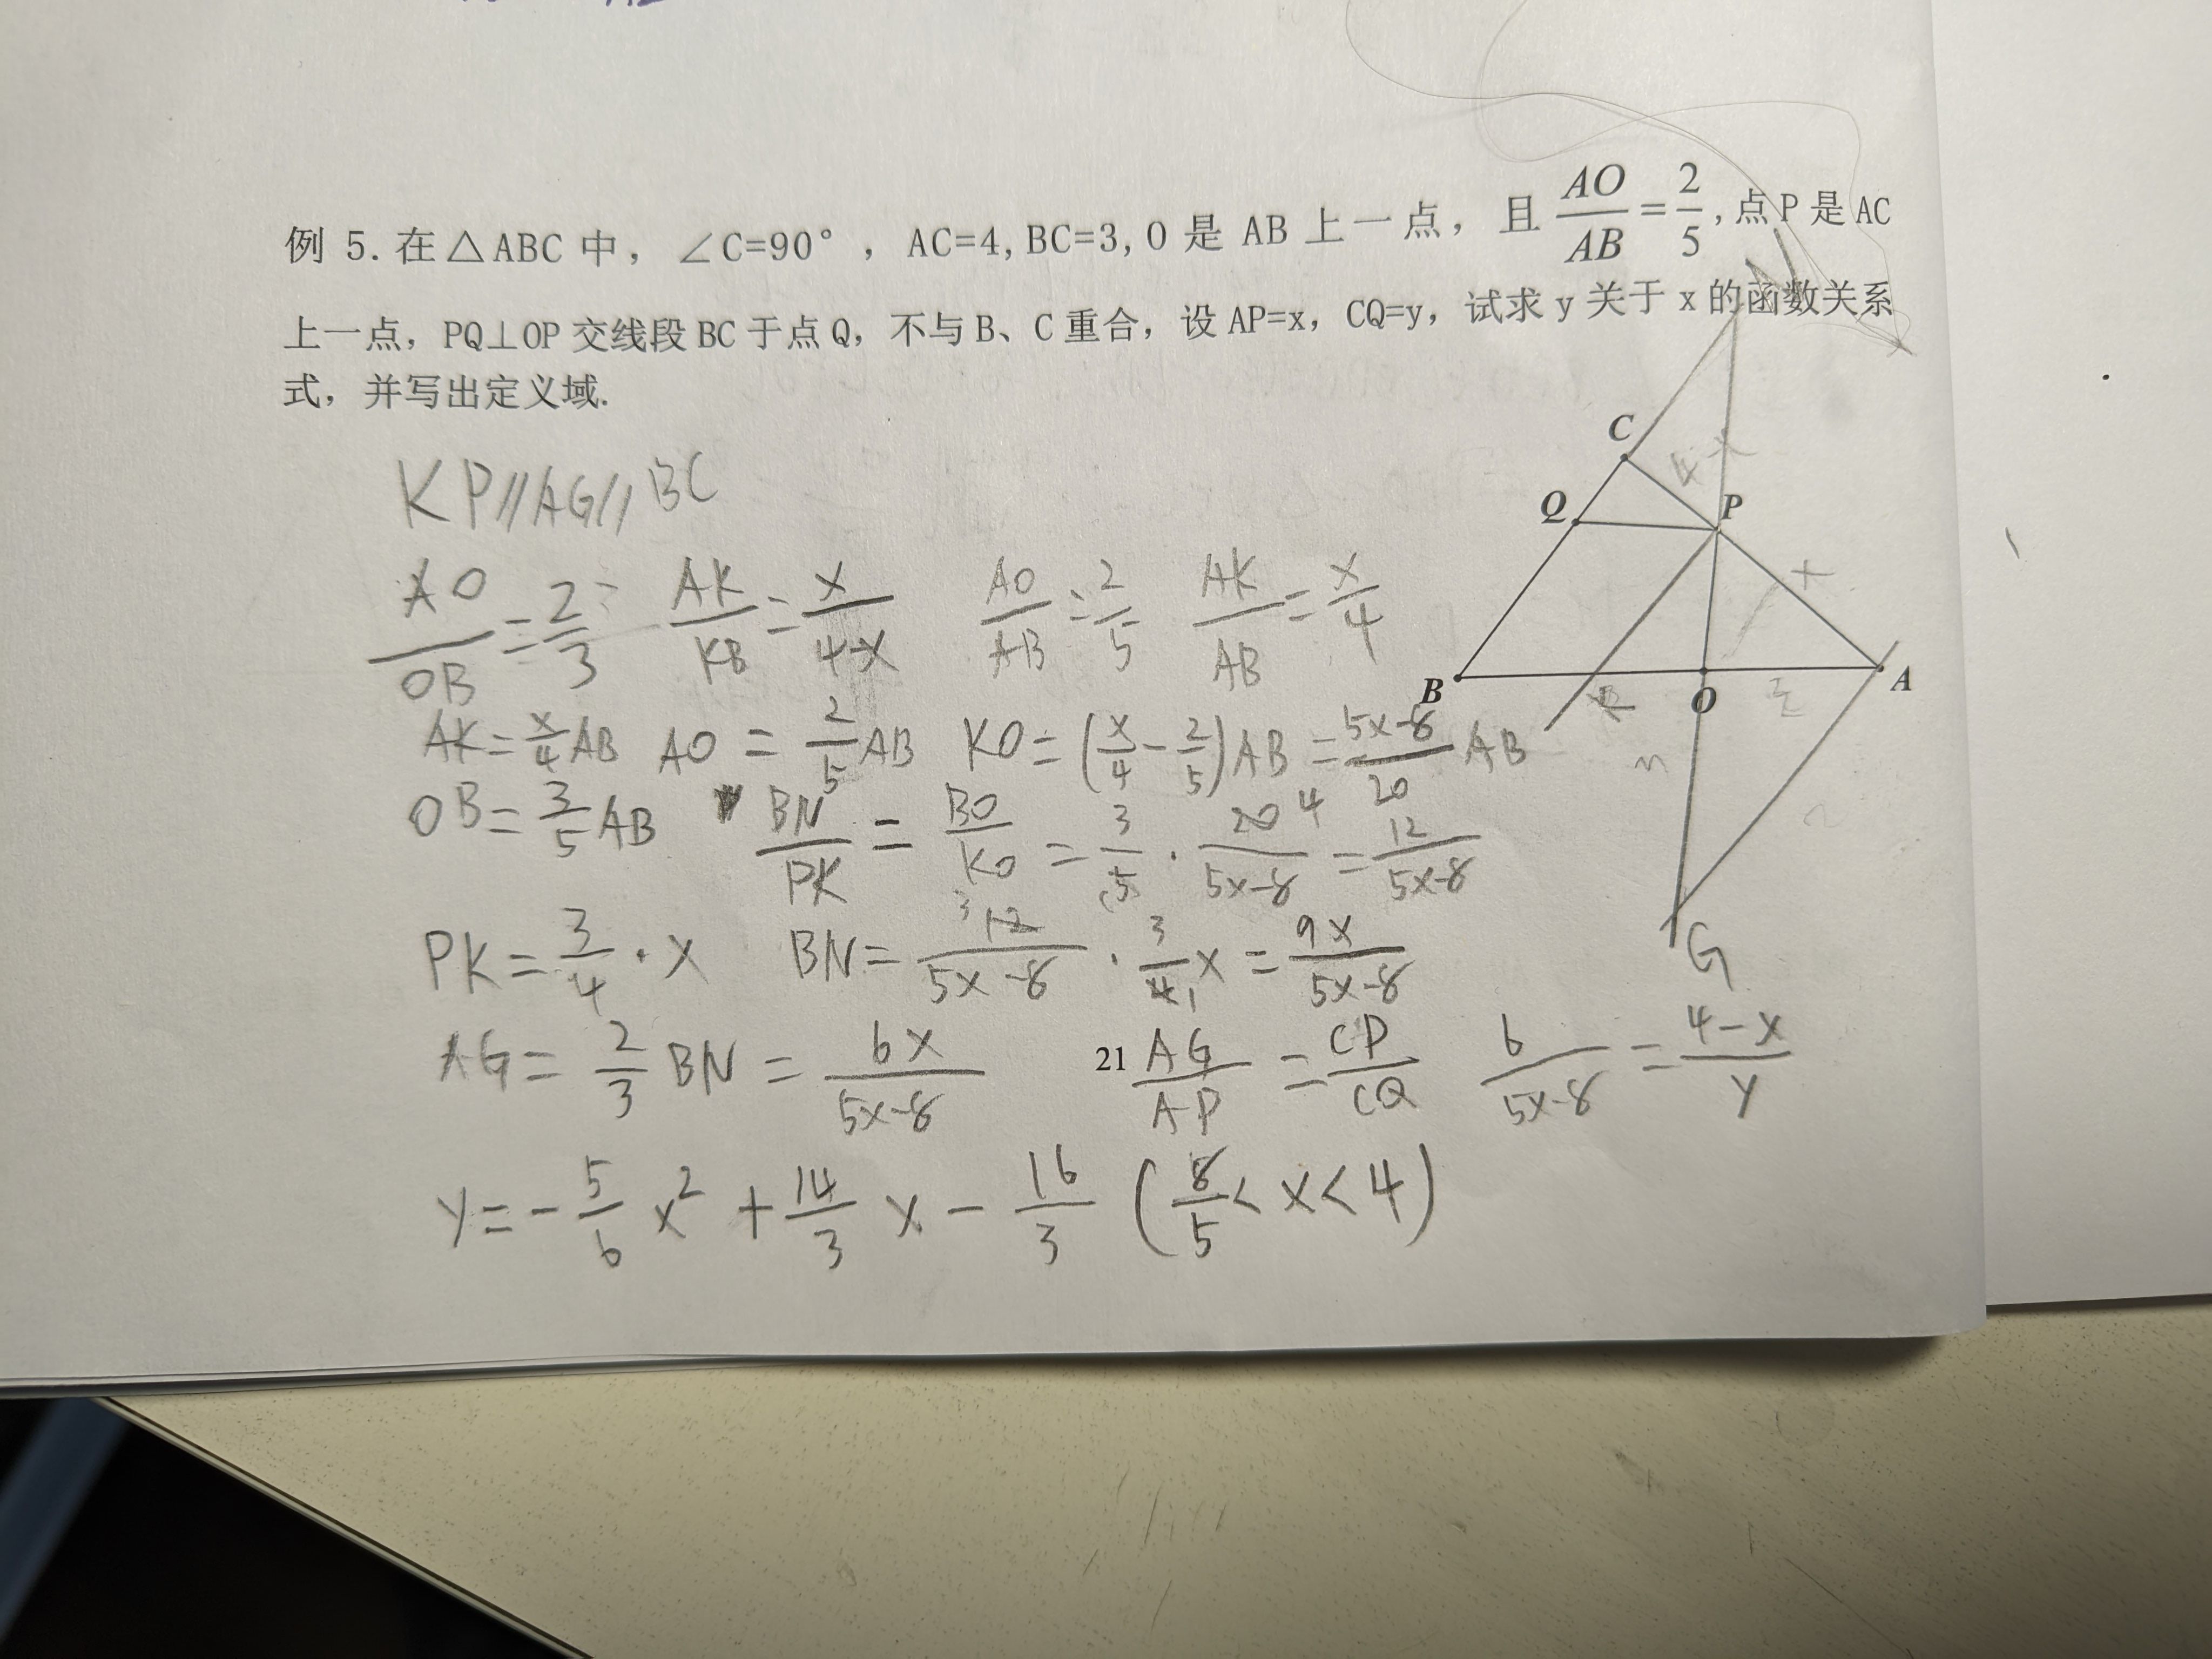 例 5. 在△ABC 中，∠C=90°，AC=4, BC=3, O 是 AB 上一点，且 AO/AB = 2/5, 点 P 是 AC
上一点，PQ⊥OP 交线段 BC 于点 Q，不与 B、C 重合，设 AP=x，CQ=y，试求 y 关于 x 的函数关系
式，并写出定义域.
C
4
Q
P
x
B
O
A
G
KP//AG//BC
AO/OB = 2/3 AK/KB = x/(4-x) AO/AB = 2/5 AK/AB = x/4
AK = x/4 AB AO = 2/5 AB KO = (x/4 - 2/5) AB = (5x-8)/20 AB
OB = 3/5 AB BN/PK = BO/KO = 3/5 · 20/(5x-8) = 12/(5x-8)
PK = 3/4 · x BN = 12/(5x-8) · 3/4 x = 9x/(5x-8)
AG = 2/3 BN = 6x/(5x-8) AG/AP = CP/CQ 6/(5x-8) = (4-x)/y
21
y = -5/6 x² + 14/3 x - 16/3 (8/5 < x < 4)